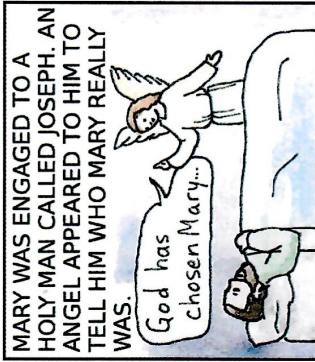 MARY WAS ENGAGED TO A
HOLY MAN CALLED JOSEPH. AN
ANGEL APPEARED TO HIM TO
TELL HIM WHO MARY REALLY
WAS.
God has
chosen Mary...